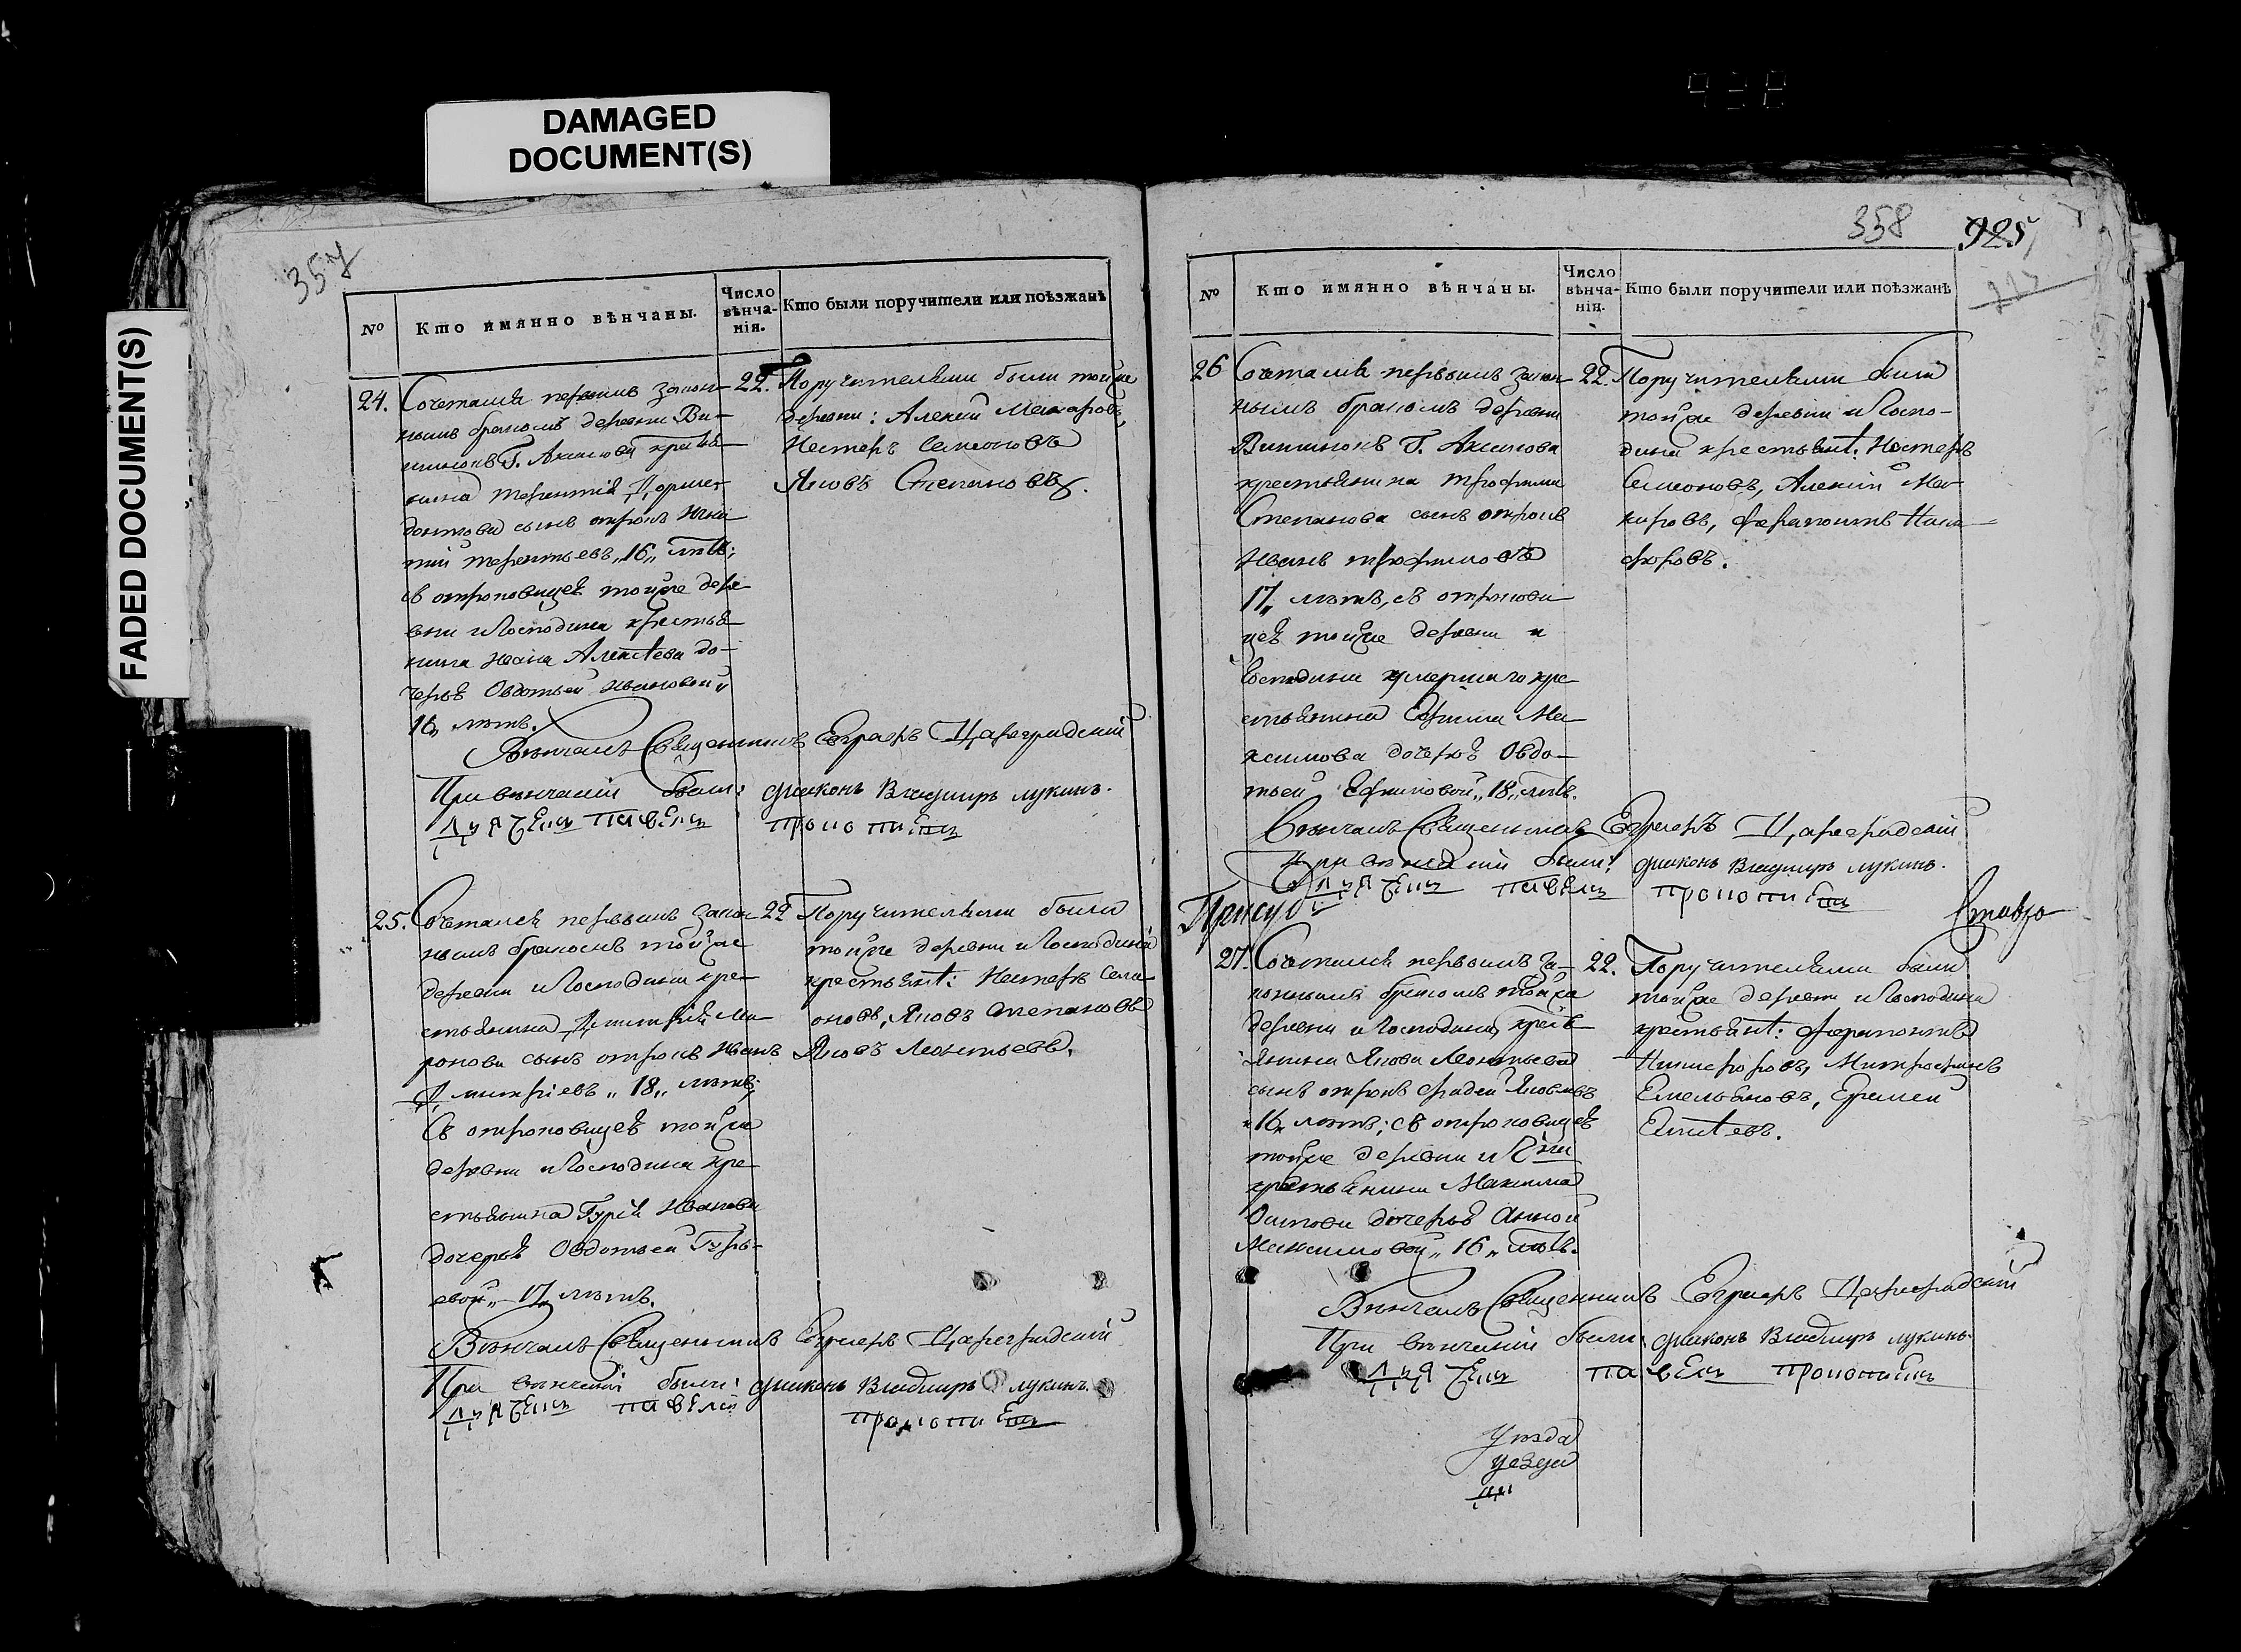 DAMAGED
DOCUMENT(S)
FADED DOCUMENT(S)
357
№ Кто имянно вѣнчаны. Число вѣнчанія. Кто были поручители или поѣзжанѣ
24. Сочетался первымъ закон-
нымъ бракомъ деревни Ви-
Г. Аксакова
сына
сынъ отрокъ Игна-
тій Терентьевъ „16„ лѣтъ;
съ отроковицеѣ тойже дере
вни и Господина крестья-
нина Ивана Алексѣева до-
черьѣ Овдотьей Ивановой „
16„ лѣтъ.
22. Поручителями были тойже
деревни: Алексѣй Макаровъ,
Нестеръ Семеоновъ
Яковъ Степановъ.
Вѣнчалъ Священникъ Евграфъ Цареградскій
При вѣнчаніи были: дiаконъ Владимиръ Лукинъ.
25. Сочетался первымъ закон
нымъ бракомъ тойже
деревни и Господина кре-
стьянина Димитрія Ми
ронова сынъ отрокъ Иванъ
Димитріевъ „18„ лѣтъ;
Съ отроковицеѣ тойже
деревни и Господина кре-
стьянина Гурія Иванова
дочерьѣ Овдотьей Гурь-
евой „17„ лѣтъ.
22 Поручителями были
тойже деревни и Господина
крестьянѣ: Нестеръ Семе-
оновъ, Яковъ Степановъ
Яковъ Леонтьевъ.
Вѣнчалъ Священникъ Евграфъ Цареградскій
При вѣнчаніи были: дiаконъ Владимиръ Лукинъ.
358 925
№ Кто имянно вѣнчаны. Число вѣнчанія. Кто были поручители или поѣзжанѣ
26 Сочетался первымъ закон
нымъ бракомъ деревни
Г. Аксакова
крестьянина Трофима
Степанова сынъ отрокъ
Иванъ Трофимовъ
17„ лѣтъ, съ отрокови
цеѣ тойже деревни и
Господина умершаго кре
стьянина Ефима Ма
ксимова дочерьѣ Овдо-
тьей Ефимовой „18„ лѣтъ.
22. Поручителями были
тойже деревни и Госпо-
дина крестьянѣ: Нестеръ
Семеоновъ, Алексѣй Ма-
каровъ, Ферапонтъ Ники-
форовъ.
Вѣнчалъ Священникъ Евграфъ Цареградскій
При вѣнчаніи были: дiаконъ Владимиръ Лукинъ.
27. Сочетался первымъ за-
коннымъ бракомъ тойже
деревни и Господина кресть
янина Якова Леонтьева
сынъ отрокъ Фадей Яковлевъ
„16„ лѣтъ; съ отроковицеѣ
тойже деревни и
крестьянина Максима
дочерьѣ Анной
Максимовой „16„ лѣтъ.
22. Поручителями были
тойже деревни и Господина
крестьянѣ: Ферапонтъ
Никифоровъ, Митрофанъ
Емельяновъ, Еремей
Вѣнчалъ Священникъ Евграфъ Цареградскій
При вѣнчаніи были: дiаконъ Владимиръ Лукинъ.